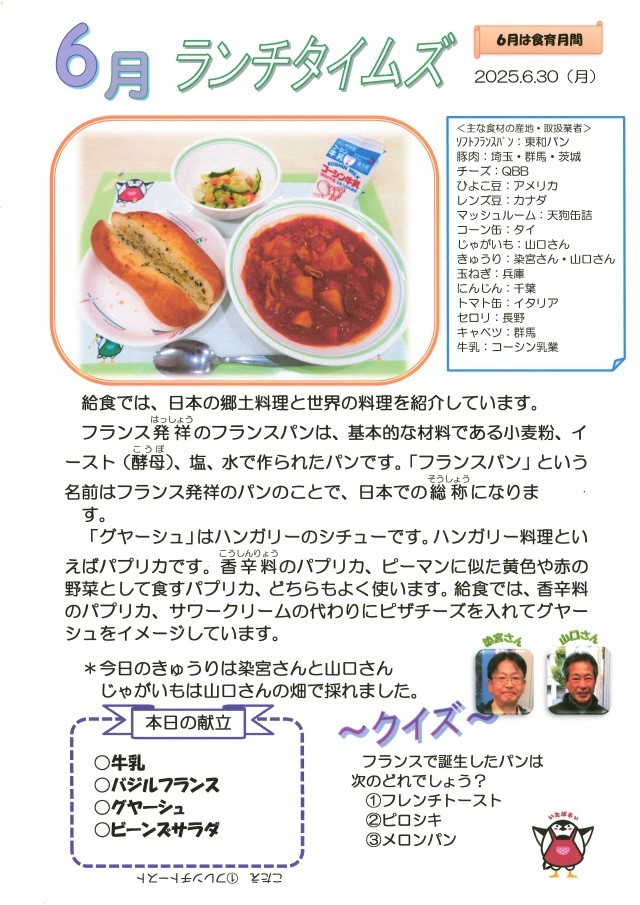 6月 ランチタイムズ
6月は食育月間
2025.6.30（月）
＜主な食材の産地・取扱業者＞
ソフトフランスパン：東和パン
豚肉：埼玉・群馬・茨城
チーズ：QBB
ひよこ豆：アメリカ
レンズ豆：カナダ
マッシュルーム：天狗缶詰
コーン缶：タイ
じゃがいも：山口さん
きゅうり：染宮さん・山口さん
玉ねぎ：兵庫
にんじん：千葉
トマト缶：イタリア
セロリ：長野
キャベツ：群馬
牛乳：コーシン乳業
コーシン牛乳
給食では、日本の郷土料理と世界の料理を紹介しています。
はっしょう
フランス発祥のフランスパンは、基本的な材料である小麦粉、イ
こうぼ
ースト（酵母）、塩、水で作られたパンです。「フランスパン」という
そうしょう
名前はフランス発祥のパンのことで、日本での総称になりま
す。
「グヤーシュ」はハンガリーのシチューです。ハンガリー料理とい
こうしんりょう
えばパプリカです。香辛料のパプリカ、ピーマンに似た黄色や赤の
野菜として食すパプリカ、どちらもよく使います。給食では、香辛料
のパプリカ、サワークリームの代わりにピザチーズを入れてグヤー
シュをイメージしています。
＊今日のきゅうりは染宮さんと山口さん
じゃがいもは山口さんの畑で採れました。
染宮さん
山口さん
本日の献立
○牛乳
○バジルフランス
○グヤーシュ
○ビーンズサラダ
～クイズ～
フランスで誕生したパンは
次のどれでしょう？
①フレンチトースト
②ピロシキ
③メロンパン
こたえ ①フレンチトースト